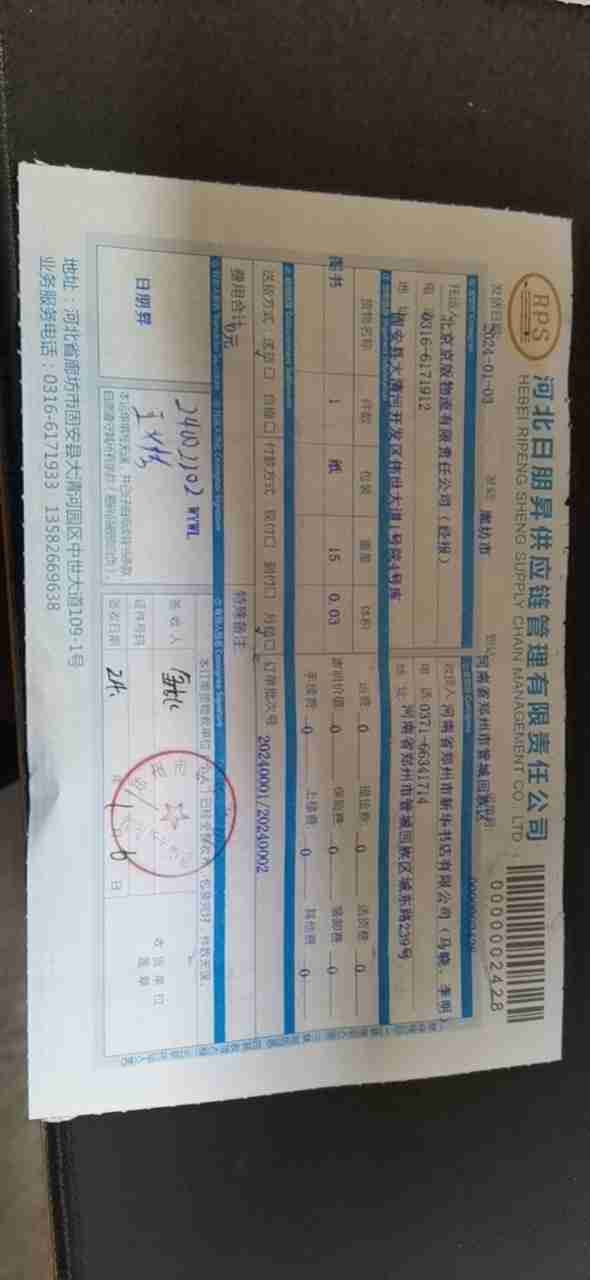 RPS
河北日朋昇供应链管理有限责任公司
HEBEI RIPENG SHENG SUPPLY CHAIN MANAGEMENT CO., LTD
0000002428
发货日期 2024-01-03 发站 廊坊市 到站 河南省郑州市管城回族区
托运人 北京京版物流有限责任公司（经报） 收货人 河南省郑州市新华书店有限公司（马晓、李明）
电 0316-6171912 电 话 0371-66341714
地 址 固安县大清河开发区伟世大道1号院4号库 地 址 河南省郑州市管城回族区城东路239号
货物名称 件数 包装 重量 体积 运费 0 提货费 0 送货费 0
图书 1 纸 15 0.03 声明价值 0 保险费 0 装卸费 0
手续费 0 上楼费 0 其他费 0
送货方式 送货口 自提口 付款方式 现付口 到付口 月结口 订单批次号 20240001/20240002
费用合计 0元 特殊备注
日朋昇
24002102 WYWL
签收人
证件号码
签收日期 年 1 6 日
收货单位盖章
地址：河北省廊坊市固安县大清河园区中世大道109-1号
业务服务电话：0316-6171933 13582669638